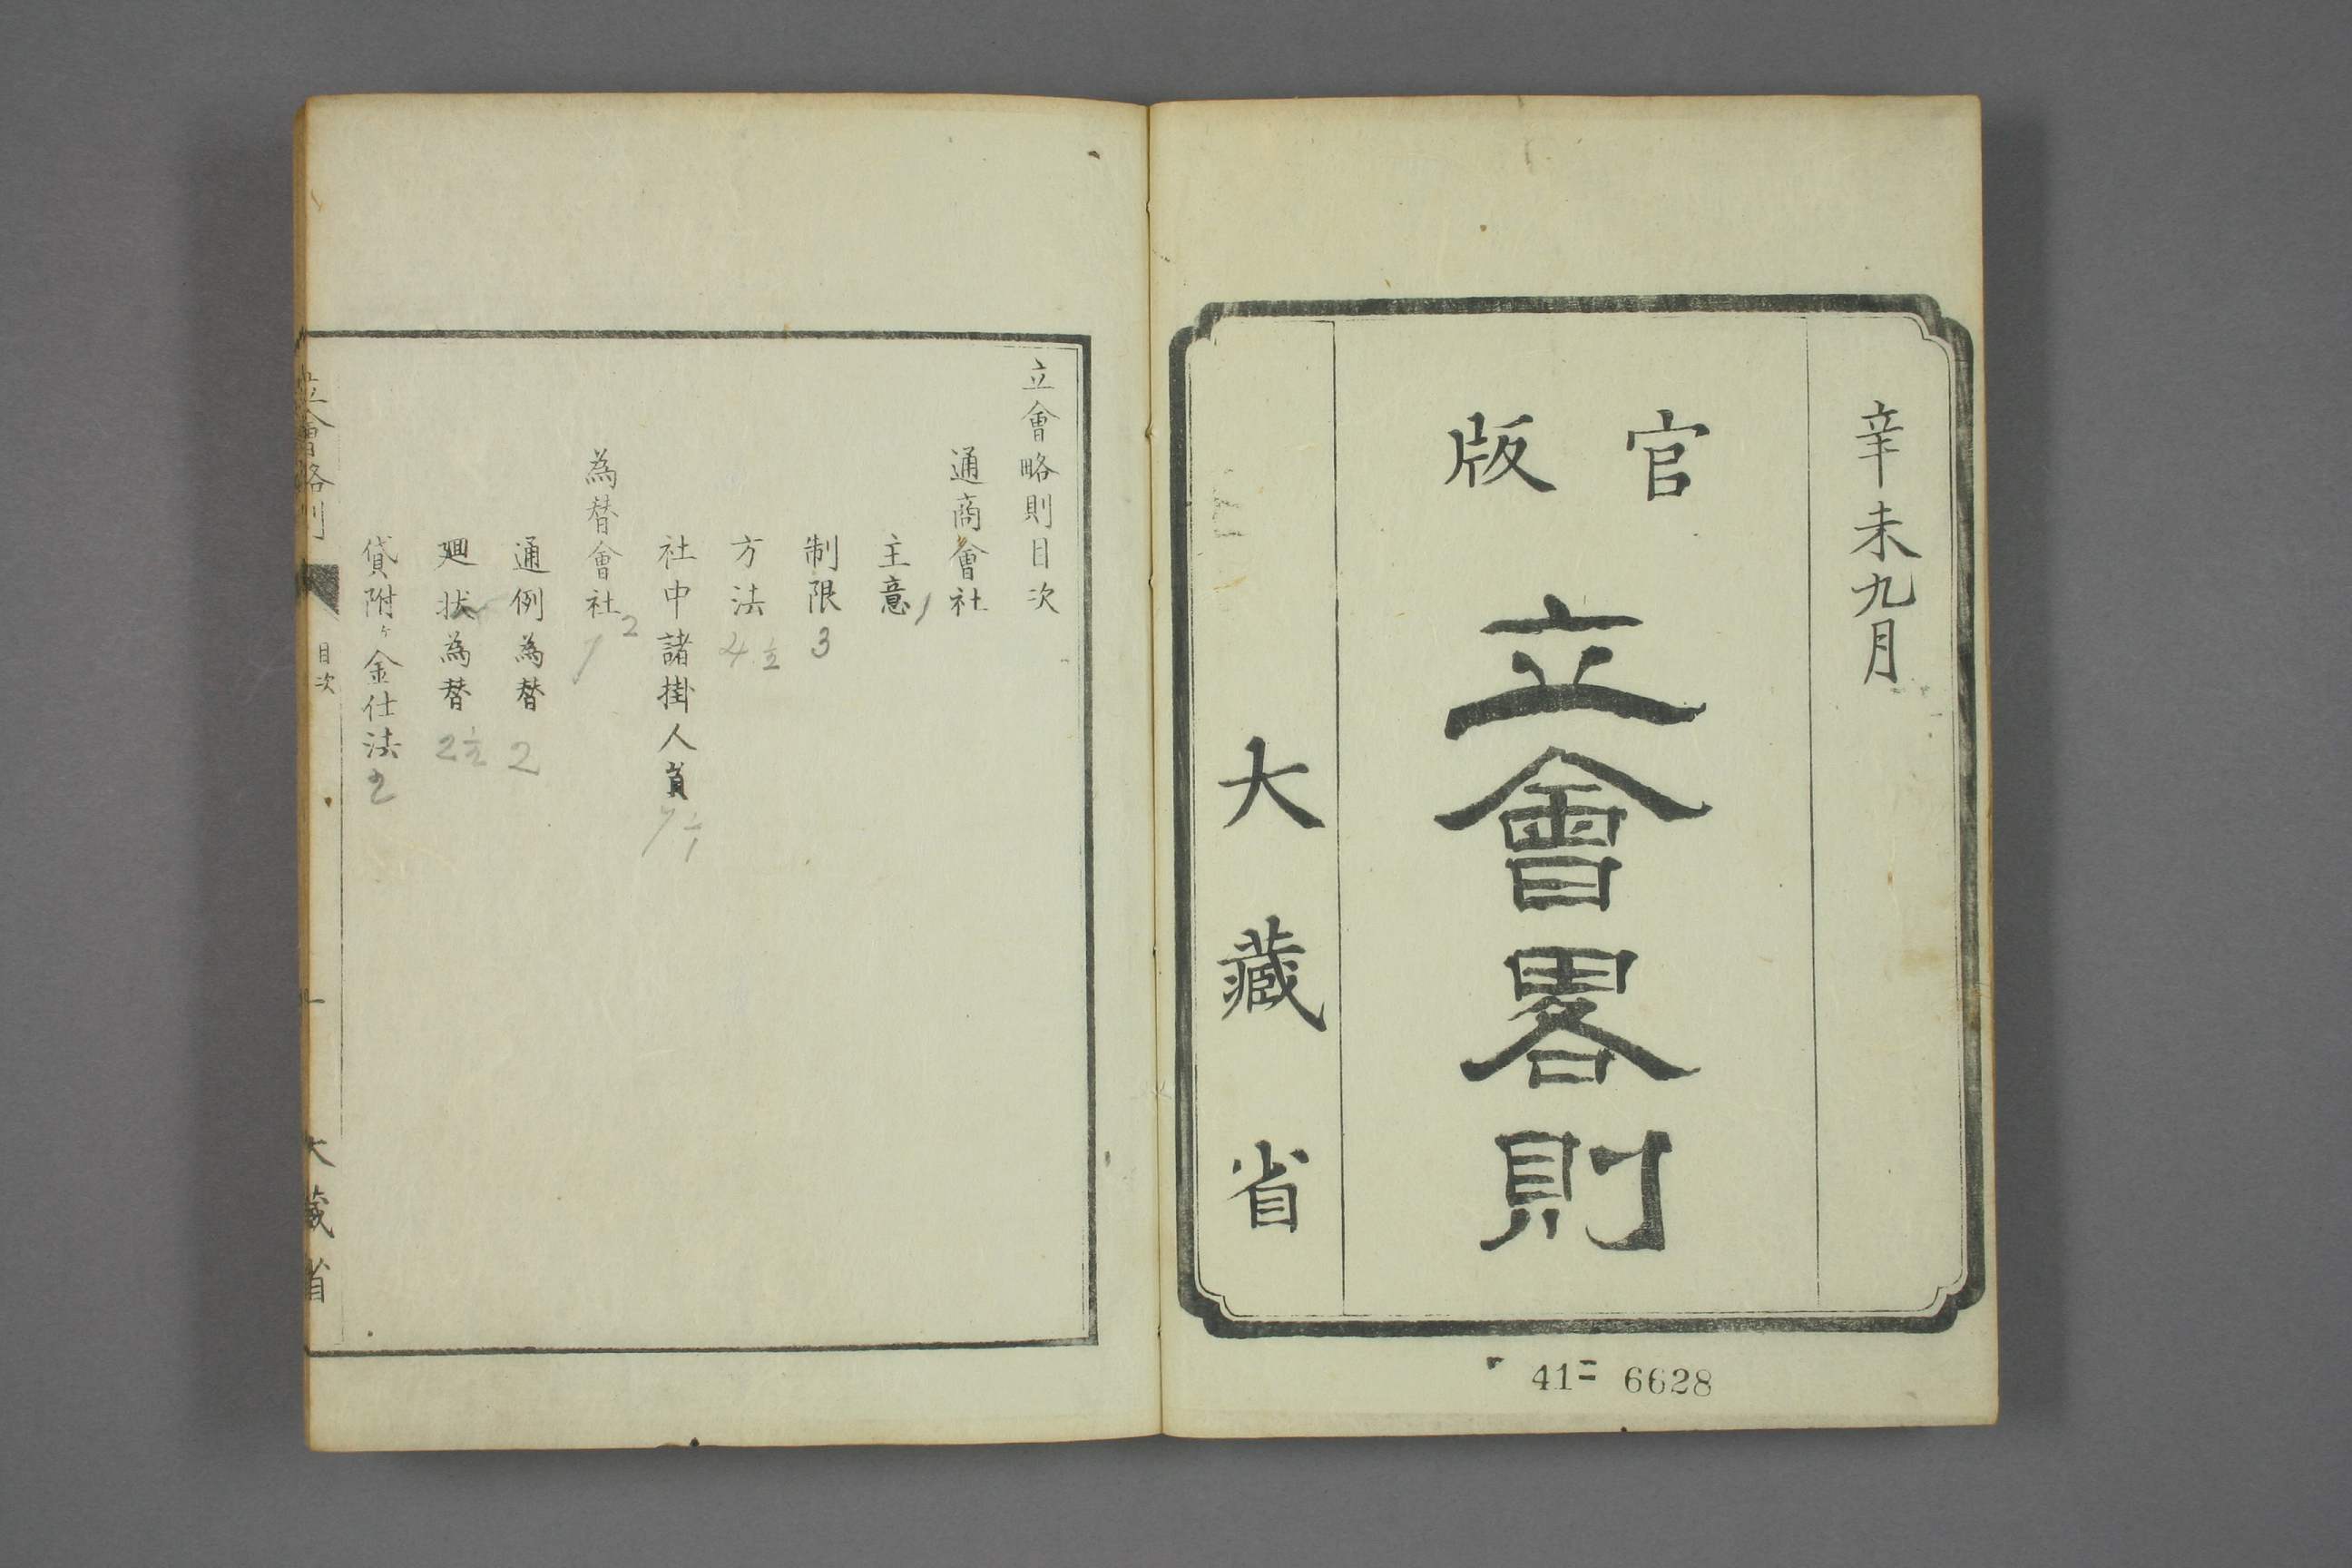 辛未九月
官版
立會畧則
大藏省
41= 6628
立會略則目次
通商會社
主意 1
制限 3
方法 4 1/2
社中諸掛人員
為替會社
通例為替 2
廻状為替 2 1/2
貸附ケ金仕法 2
立會略則
目次
一
大藏省